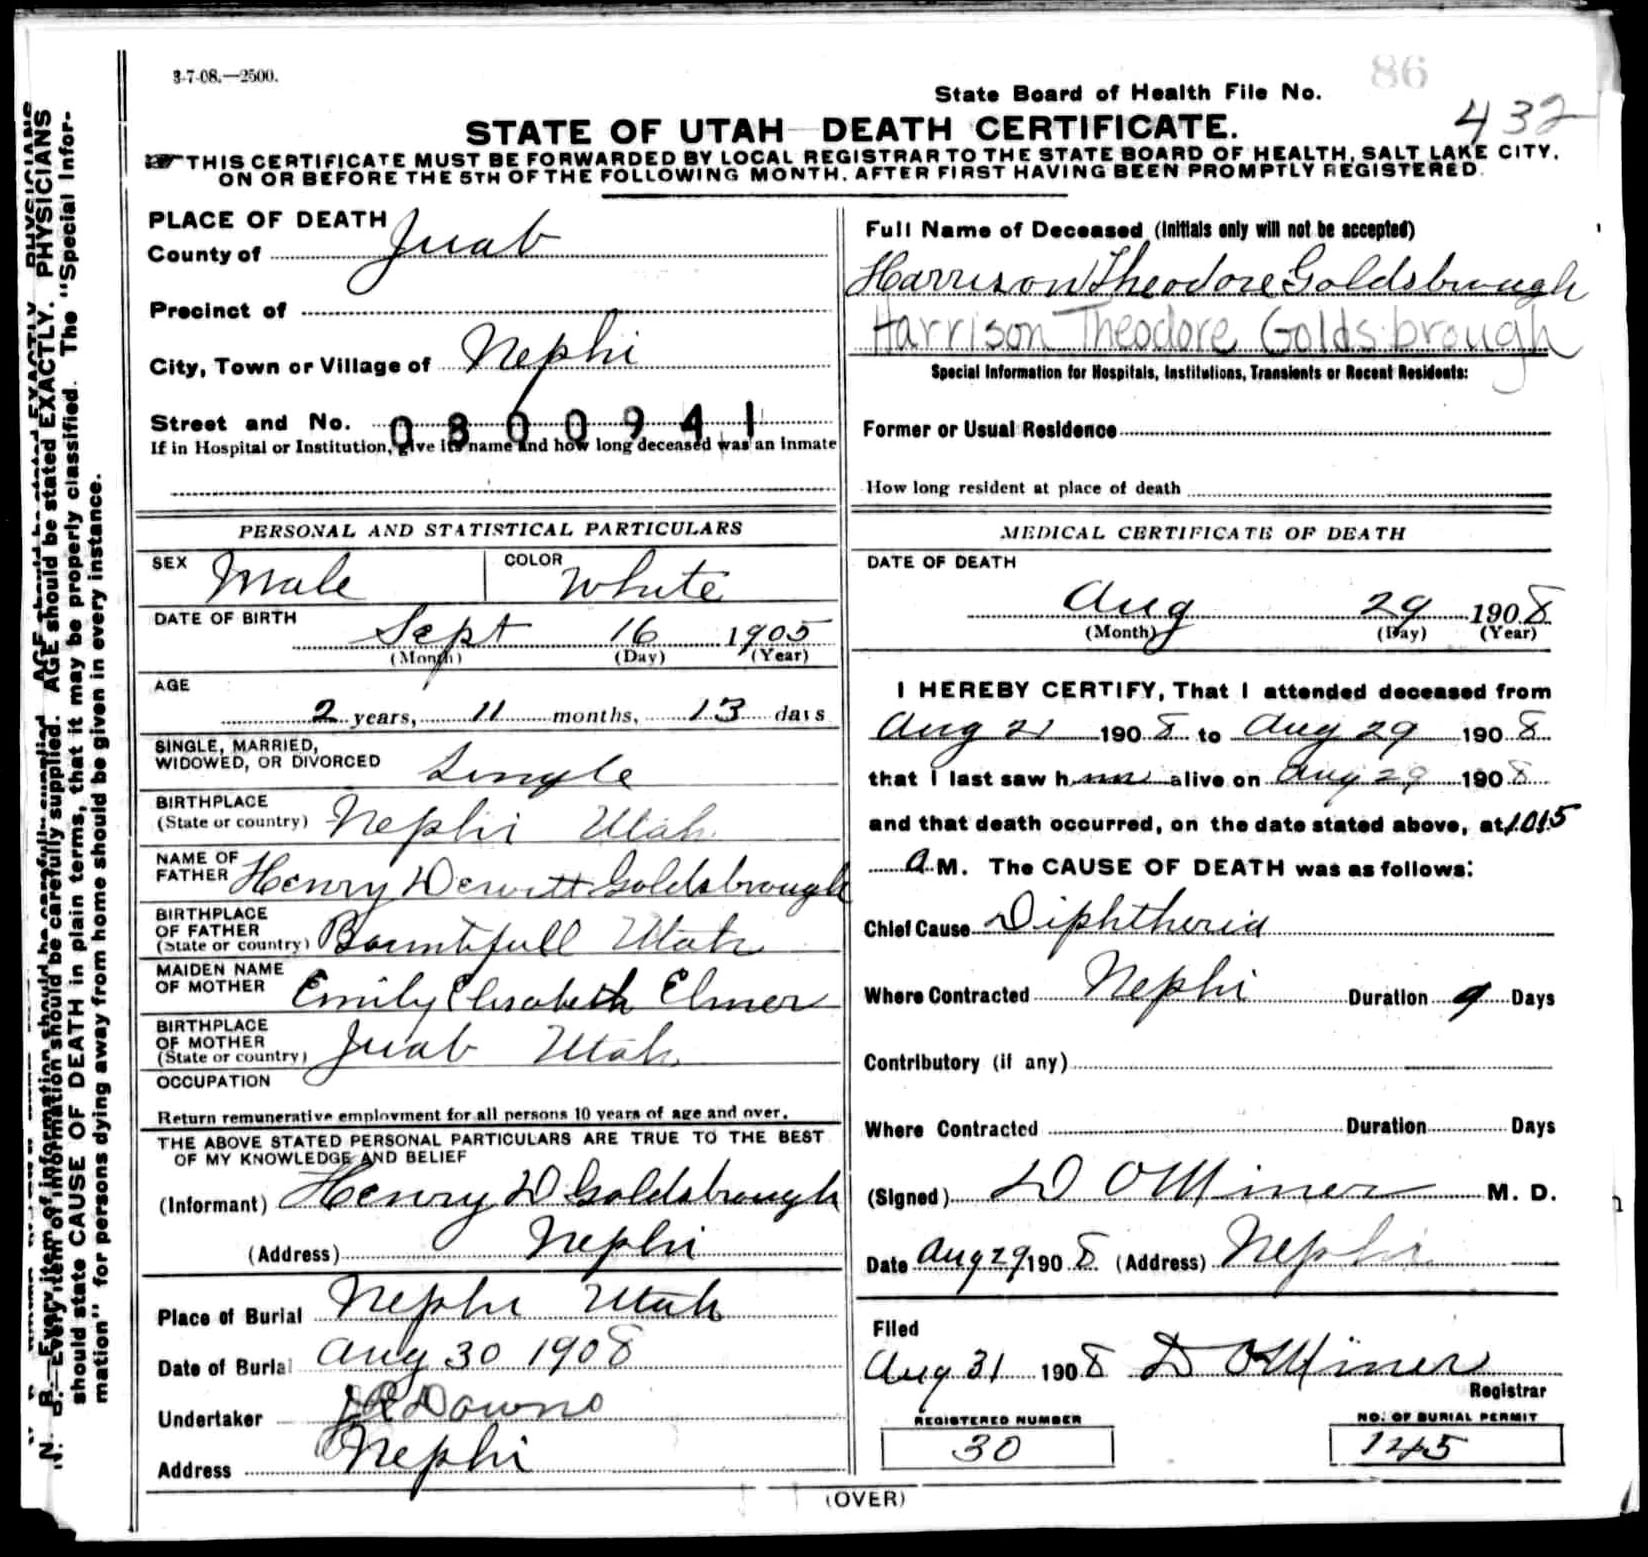 3-7-08.—2500.
86
State Board of Health File No.
432
STATE OF UTAH—DEATH CERTIFICATE.
☞THIS CERTIFICATE MUST BE FORWARDED BY LOCAL REGISTRAR TO THE STATE BOARD OF HEALTH, SALT LAKE CITY,
ON OR BEFORE THE 5TH OF THE FOLLOWING MONTH, AFTER FIRST HAVING BEEN PROMPTLY REGISTERED.
PLACE OF DEATH
County of Juab
Precinct of
City, Town or Village of Nephi
Street and No. 0300941
If in Hospital or Institution, give its name and how long deceased was an inmate
Full Name of Deceased (Initials only will not be accepted)
Harrison Theodore Goldsbrough
Harrison Theodore Goldsbrough
Special Information for Hospitals, Institutions, Transients or Recent Residents:
Former or Usual Residence
How long resident at place of death
PERSONAL AND STATISTICAL PARTICULARS
SEX Male COLOR White
DATE OF BIRTH
Sept 16 1905
(Month) (Day) (Year)
AGE
2 years, 11 months, 13 days
SINGLE, MARRIED,
WIDOWED, OR DIVORCED Single
BIRTHPLACE
(State or country) Nephi Utah
NAME OF
FATHER Henry Dewitt Goldsbrough
BIRTHPLACE
OF FATHER
(State or country) Bountifull Utah
MAIDEN NAME
OF MOTHER Emily Elisabeth Elmer
BIRTHPLACE
OF MOTHER
(State or country) Juab Utah
OCCUPATION
Return remunerative employment for all persons 10 years of age and over.
THE ABOVE STATED PERSONAL PARTICULARS ARE TRUE TO THE BEST
OF MY KNOWLEDGE AND BELIEF
(Informant) Henry D Goldsbrough
(Address) Nephi
Place of Burial Nephi Utah
Date of Burial Aug 30 1908
Undertaker Downs
Address Nephi
MEDICAL CERTIFICATE OF DEATH
DATE OF DEATH
Aug 29 1908
(Month) (Day) (Year)
I HEREBY CERTIFY, That I attended deceased from
Aug 21 1908 to Aug 29 1908
that I last saw him alive on Aug 29 1908
and that death occurred, on the date stated above, at 10.15
a M. The CAUSE OF DEATH was as follows:
Chief Cause Diphtheria
Where Contracted Nephi Duration 9 Days
Contributory (if any)
Where Contracted Duration Days
(Signed) D O Miner M. D.
Date Aug 29 1908 (Address) Nephi
Filed
Aug 31 1908 D O Miner
Registrar
REGISTERED NUMBER
30
NO. OF BURIAL PERMIT
145
(OVER)
N. B.—Every item of information should be carefully supplied. AGE should be stated EXACTLY. PHYSICIANS
should state CAUSE OF DEATH in plain terms, that it may be properly classified. The "Special Infor-
mation" for persons dying away from home should be given in every instance.